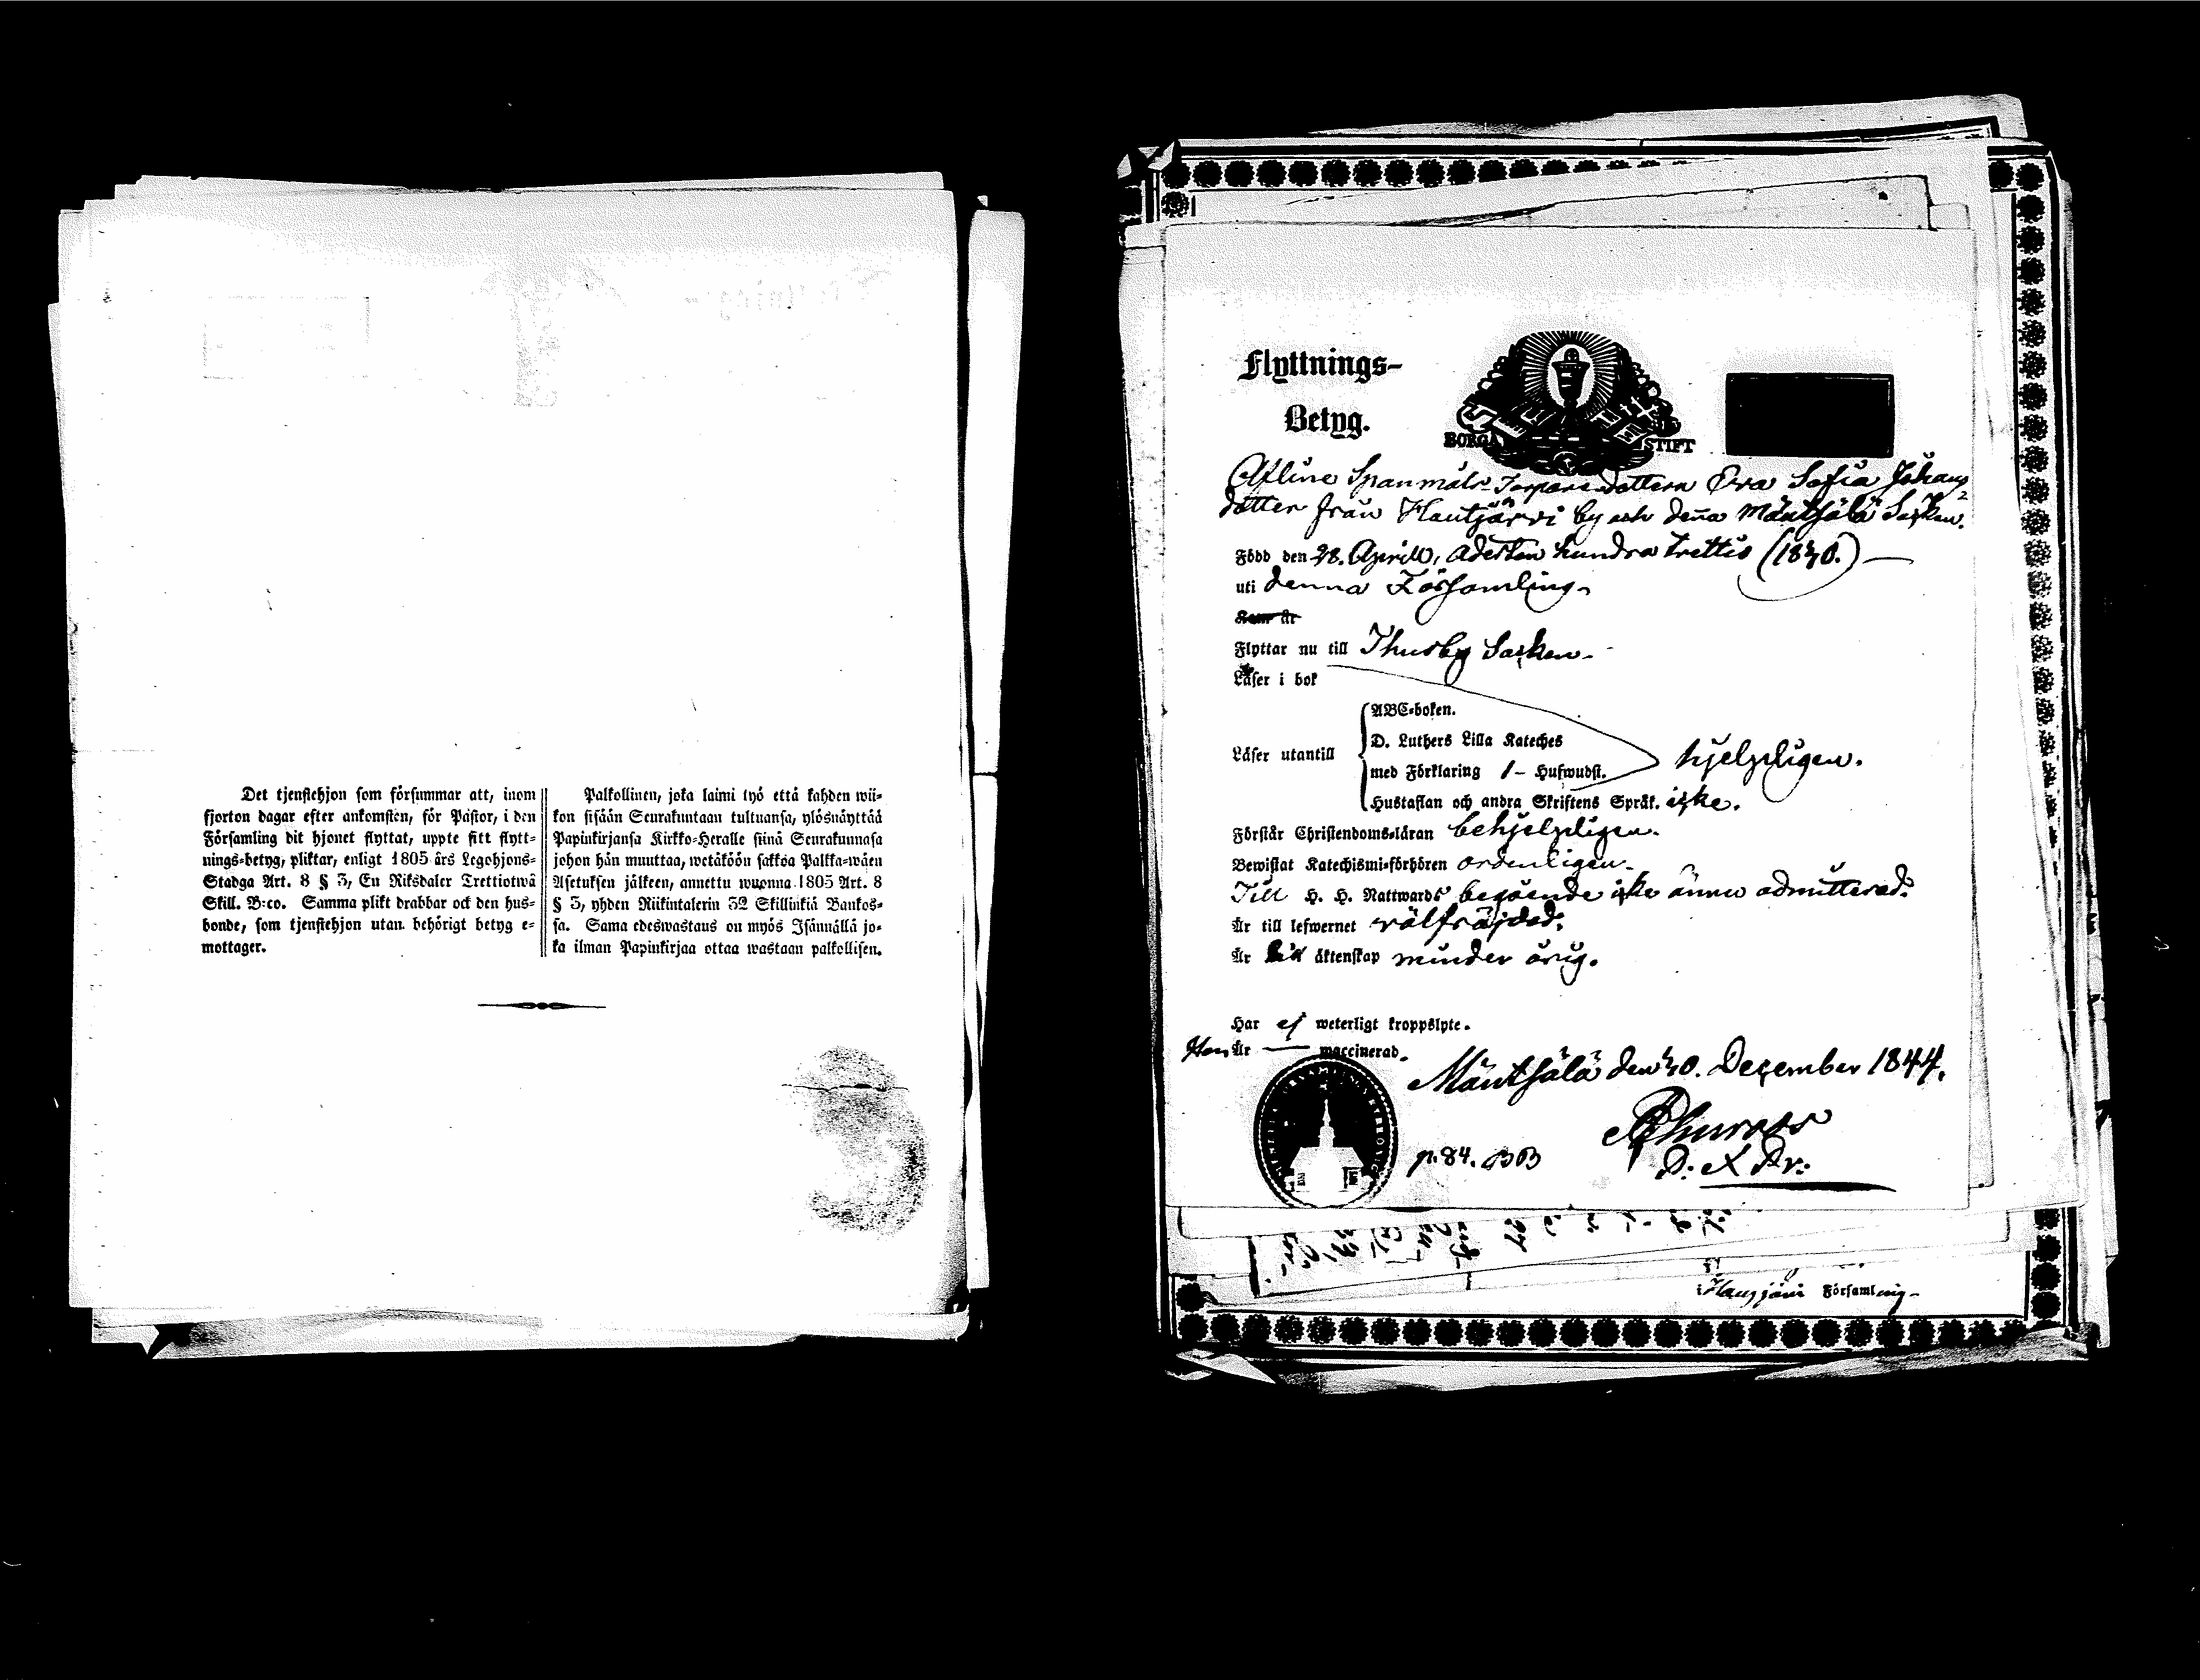 Det tjenstehjon som försummar att, inom
fjorton dagar efter ankomsten, för Pastor, i den
Församling dit hjonet flyttat, uppte sitt flytt-
nings-betyg, pliktar, enligt 1805 års Legohjons-
Stadga Art. 8 § 3, En Riksdaler Trettiotwå
Skill. B:co. Samma plikt drabbar ock den hus-
bonde, som tjenstehjon utan behörigt betyg e-
mottager.
Palkollinen, joka laimi lyö että kahden wii-
kon sisään Seurakuntaan tultuansa, ylösnäyttää
Papinkirjansa Kirkko-Heralle siinä Seurakunnasa
johon hän muuttaa, wetäköön sakkoa Palkka-wäen
Asetuksen jälkeen, annettu wuonna 1805 Art. 8
§ 3, yhden Riikintalerin 32 Skillinkiä Bankos-
sa. Sama edeswastaus on myös Isännällä jo-
ka ilman Papinkirjaa ottaa wastaan palkollisen.
Flyttnings-
Betyg.
BORGÅ STIFT
Aflidne Spanmåls-Torpare dottern Eva Sofia Johans
dotter från Hautjärvi by och denna Mäntsälä Socken.
Född den 28. Aprill, Aderton hundra trettio (1830.)
uti denna Församling.
Kom år
Flyttar nu till Thusby Socken.
Läser i bok
ABC-boken.
D. Luthers Lilla Kateches
Läser utantill
med Förklaring 1 - Hufwudst.
hjelpligen.
Hustaflan och andra Skriftens Språk. icke.
Förstår Christendoms-läran behjelpligen.
Bewistat Katechismi-förhören ordentligen.
Till H. H. Nattwards begående icke ännu admitterad.
Är till lefwernet välfräjdad.
Är till äktenskap minder årig.
Har ej weterligt kroppslyte.
Hon Är — waccinerad.
Mäntsälä den 30. December 1844.
p. 84.
i Hausjärvi Församling